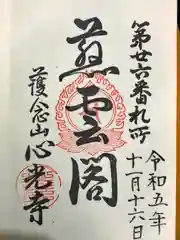 第廿六番札所
慈雲閣
護念山心光寺
令和五年
十一月十六日